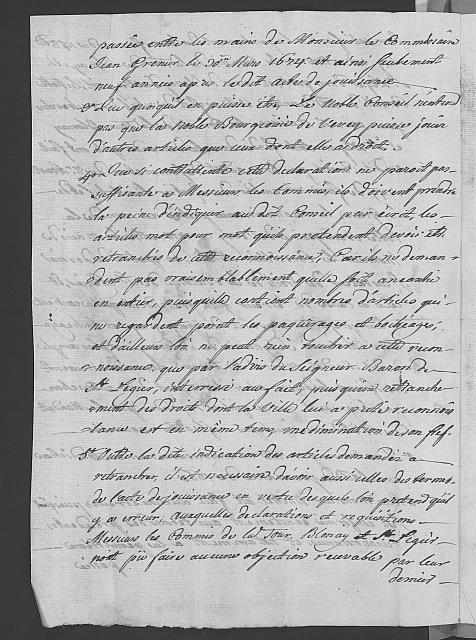 passée entre les mains de Monsieur le Commissaire
Jean Grenir le 20e. Mars 1674 et ainsi seulement
neuf années après le dit acte de jouissance
3o Que quoiqu'il en puisse être, Le Noble Conseil n'entend
pas que la Noble Bourgeoisie de Vevey puisse jouir
d'autres articles que ceux dont elle a droit.
4o Que si contr'attente cette déclaration ne paroit pas
suffisante à Messieurs les Commis, ils doivent prendre
la peine d'indiquer au dit Conseil par écrit les
articles mot pour mot qu'ils pretendent devoir être
retranchés de cette reconnoissance, Car ils ne deman-
dent pas vraisemblablement qu'elle soit aneantie
en entier, puisqu'elle contient nombres d'articles qui
ne regardent point les paquerages et bocheages,
et d'ailleurs l'on ne peut rien toucher à cette recon-
noissance, que par l'adris du Seigneur Baron de
St. Legier, interessé au fait, puisqu'en retranche-
ment des droits dont la Ville lui a prêté reconnois-
sance est en même tems une diminution de son fief.
5o Outre la dite indication des articles demandés à
retrancher, il est necessaire d'avoir aussi celles des termes
de l'acte de jouissance en vertu desquels l'on pretend qu'il
y a erreur, auxquelles declarations et requisitions
Messieurs les Commis de la Tour, Blonay et St. Legier
n'ont pû faire aucune objection recevable par leur
dernier